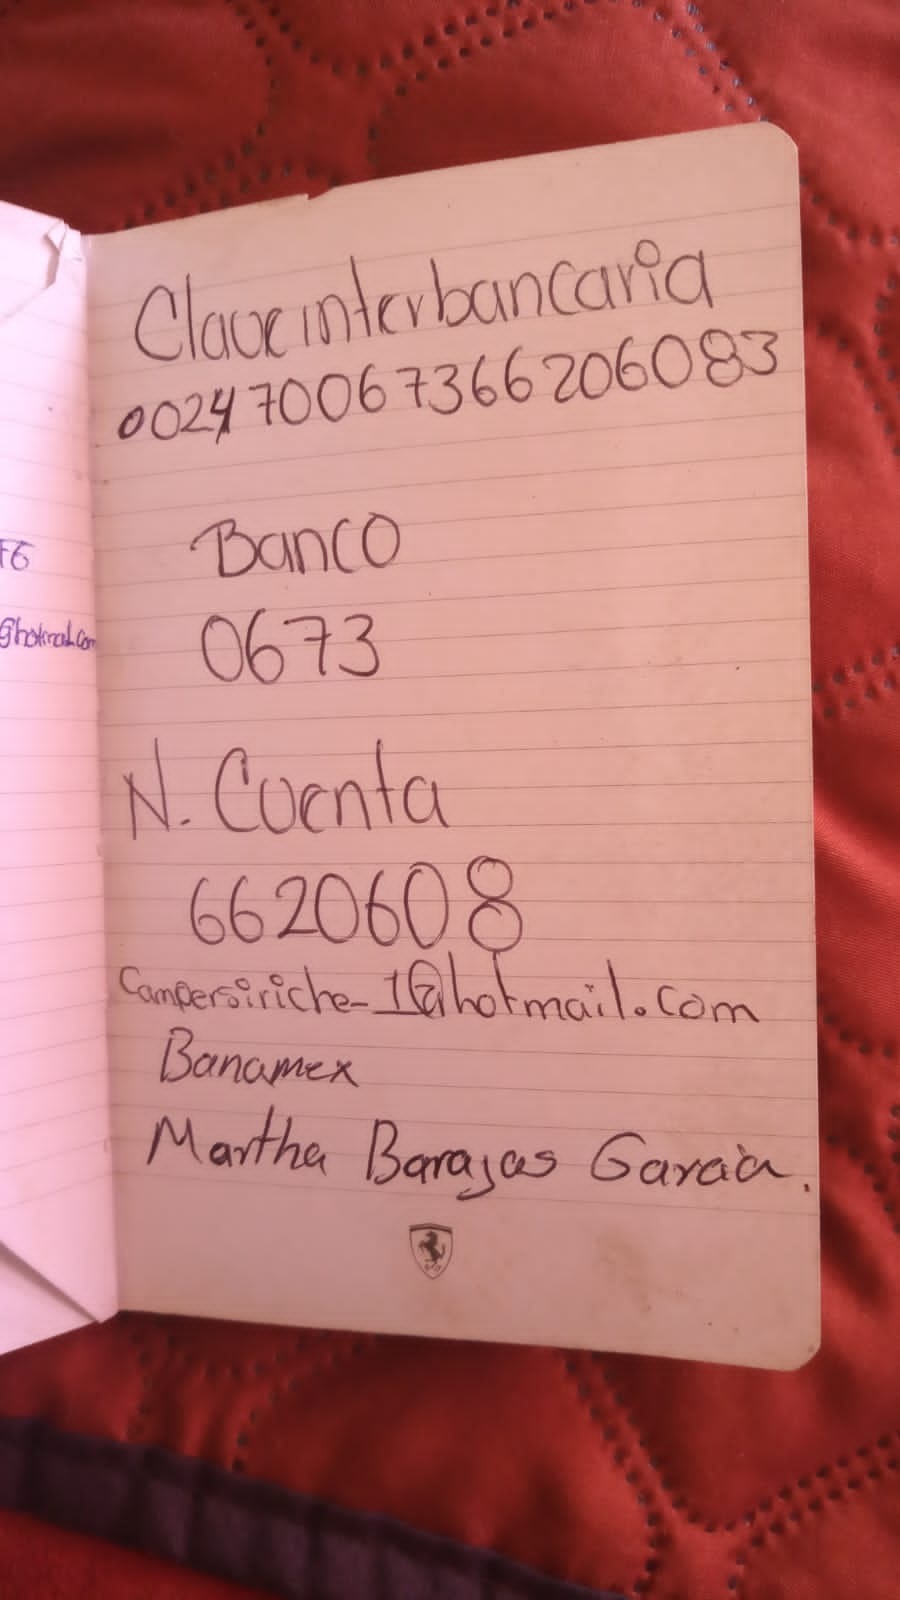 F6
@hotmail.com
Clave interbancaria
002470067366206083
Banco
0673
N. Cuenta
6620608
Campersiriche_1@hotmail.com
Banamex
Martha Barajas Garcia.